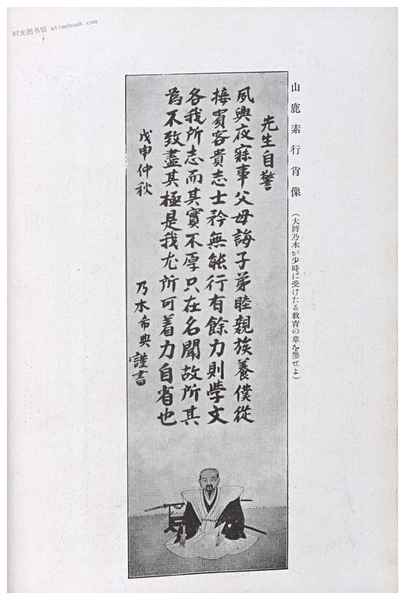 时光图书馆 etimebook.com
山鹿素行肖像
（大將乃木が少時に受けたる教育の章を參せよ）
先生自警
夙興夜寐事父母誨子弟睦親族養僕從
接賓客貴志士矜無能行有餘力則學文
各我所志而其實不厚只在名聞故所其
為不致盡其極是我尤所可着力自省也
戊申仲秋
乃木希典謹書